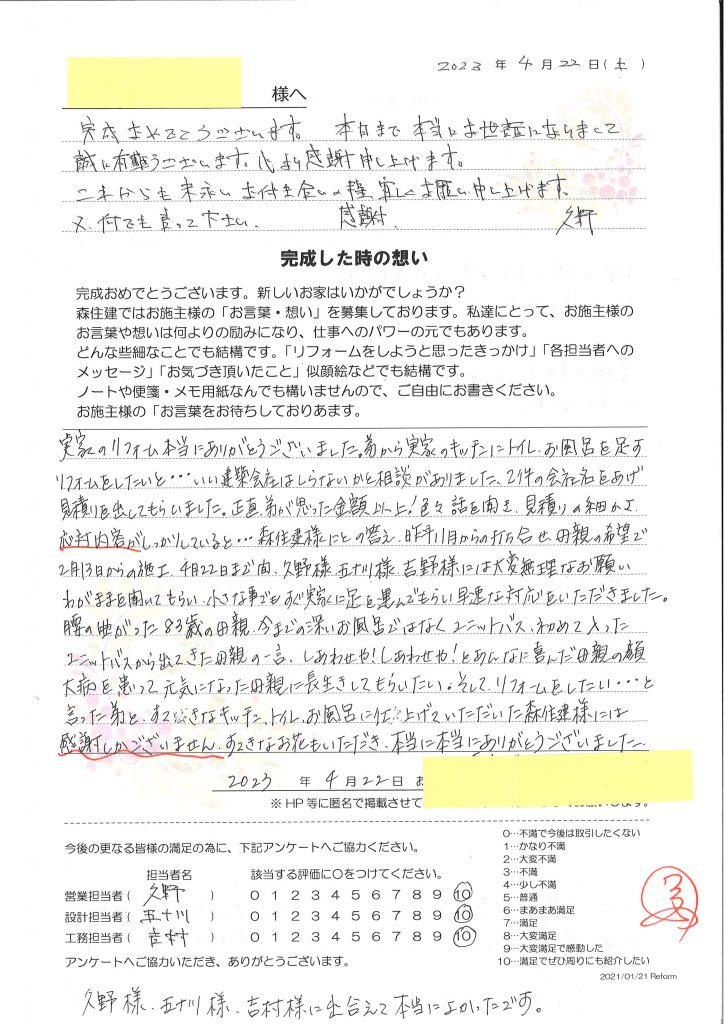 2023 年 4 月 22 日(土)
様へ
完成おめでとうございます。 本日まで本当にお世話になりまして
誠に有難うございます。心より感謝申し上げます。
これからも末永いお付き合いの程、宜しくお願い申し上げます。
又、何でも言って下さい。 感謝 久野
完成した時の想い
完成おめでとうございます。新しいお家はいかがでしょうか?
森住建ではお施主様の「お言葉・想い」を募集しております。私達にとって、お施主様の
お言葉や想いは何よりの励みになり、仕事へのパワーの元でもあります。
どんな些細なことでも結構です。「リフォームをしようと思ったきっかけ」「各担当者への
メッセージ」「お気づき頂いたこと」似顔絵などでも結構です。
ノートや便箋・メモ用紙なんでも構いませんので、ご自由にお書きください。
お施主様の「お言葉をお待ちしておりあます。
実家のリフォーム本当にありがとうございました。弟から実家のキッチンにトイレ、お風呂を足す
リフォームをしたいと…いい建築会社はしらないかと相談がありました、2件の会社名をあげ
見積りを出してもらいました。正直、弟が思った金額以上!色々話を聞き、見積りの細かさ、
応対内容がしっかりしていると…森住建様にとの答え、昨年11月からの打ち合せ、母親の希望で
2月13日からの施工、4月22日まで間、久野様、五十川様、吉野様には大変無理なお願い
わがままを聞いてもらい、小さな事でもすぐ実家に足を運んでもらい早速な対応をいただきました。
腰の曲がった83歳の母親、今までの深いお風呂ではなくユニットバス、初めて入った
ユニットバスから出てきた母親の一言、しあわせや!しあわせや!とあんなに喜んだ母親の顔
大病を患って、元気になった母親に長生きしてもらいたい。そして、リフォームをしたい…と
言った弟と、すてきなキッチン、トイレ、お風呂に仕上げていただいた森住建様には
感謝しかございません、すてきなお花もいただき、本当に本当にありがとうございました。
2023 年 4 月 22 日 お
※HP等に匿名で掲載させて
今後の更なる皆様の満足の為に、下記アンケートへご協力ください。
担当者名 該当する評価に○をつけてください。
営業担当者( 久野 ) 0 1 2 3 4 5 6 7 8 9 10
設計担当者( 五十川 ) 0 1 2 3 4 5 6 7 8 9 10
工務担当者( 吉村 ) 0 1 2 3 4 5 6 7 8 9 10
アンケートへご協力いただき、ありがとうございます。
0…不満で今後は取引したくない
1…かなり不満
2…大変不満
3…不満
4…少し不満
5…普通
6…まあまあ満足
7…満足
8…大変満足
9…大変満足で感動した
10…満足でぜひ周りにも紹介したい
2021/01/21 Reform
久野様、五十川様、吉村様に出会えて本当によかったです。